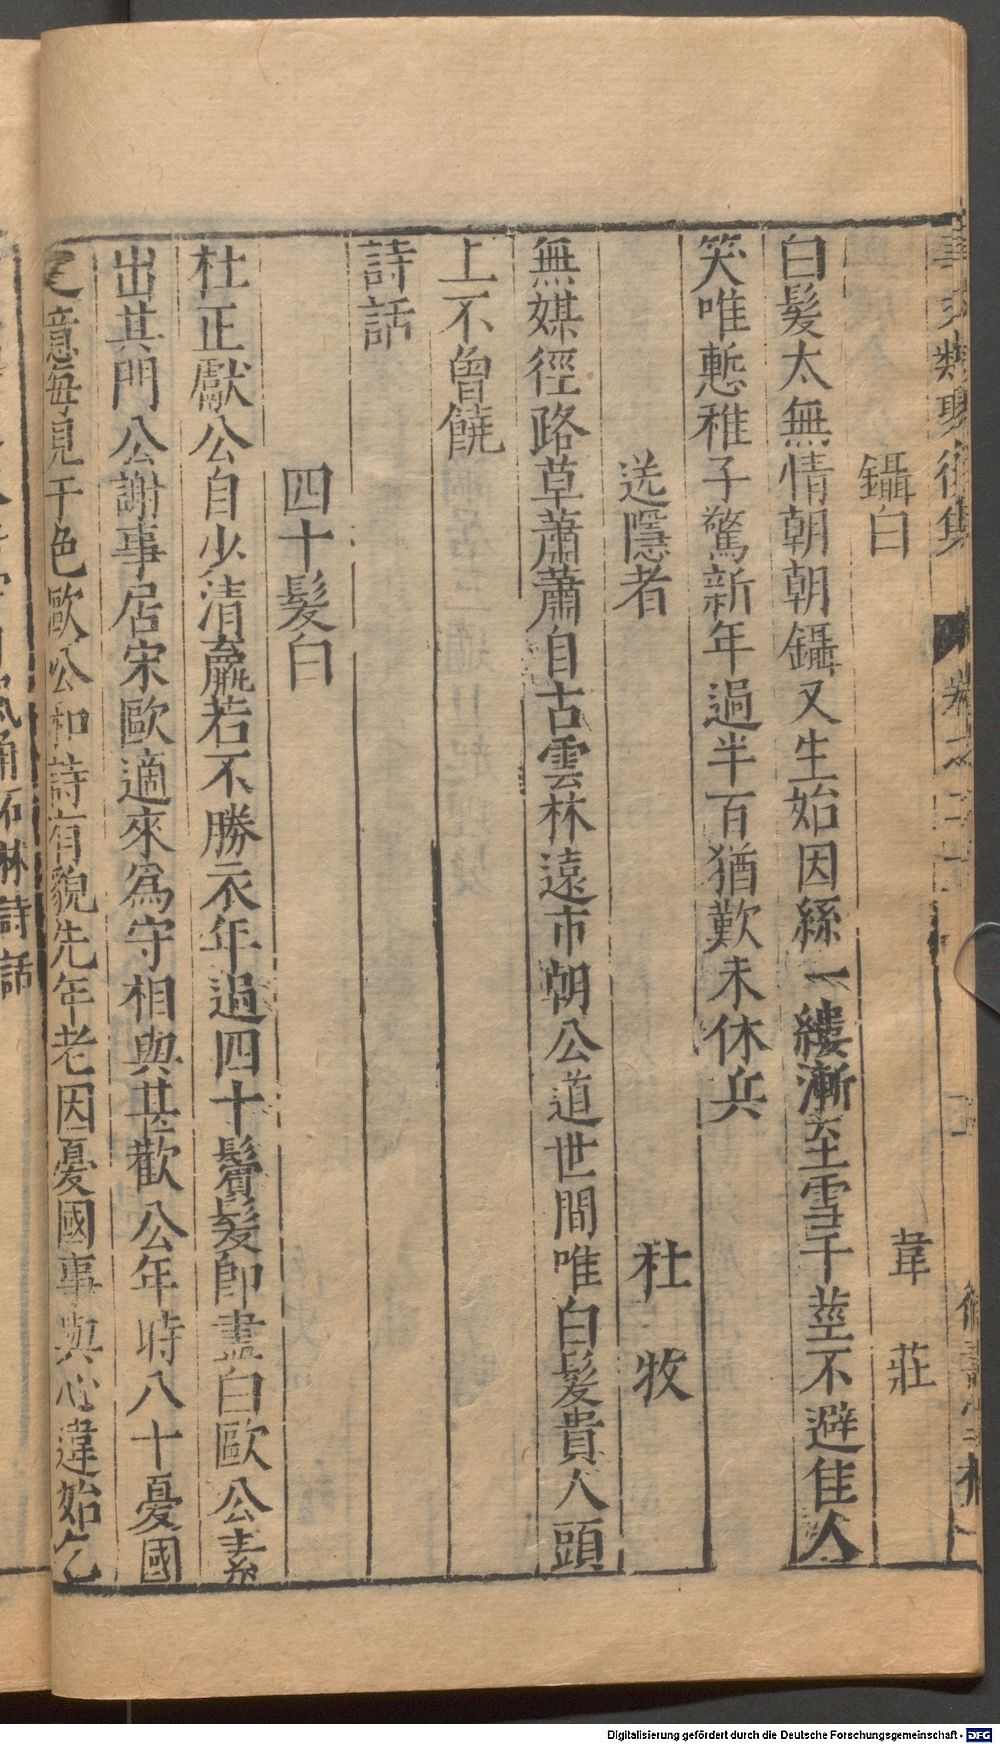 鑷白　韋莊
白髮太無情朝朝鑷又生始因絲一縷漸至雪千莖不避佳人
笑唯慙稚子驚新年過半百猶歎未休兵
送隱者　杜牧
無媒徑路草蕭蕭自古雲林遠市朝公道世間唯白髮貴人頭
上不曾饒
詩話
四十髮白
杜正獻公自少清羸若不勝衣年過四十鬢髮即盡白歐公素
出其門公謝事居宋歐適來為守相與甚歡公年時八十憂國
之意每見于色歐公和詩有貌先年老因憂國事與心違始乞
石林詩話
Digitalisierung gefördert durch die Deutsche Forschungsgemeinschaft - DFG